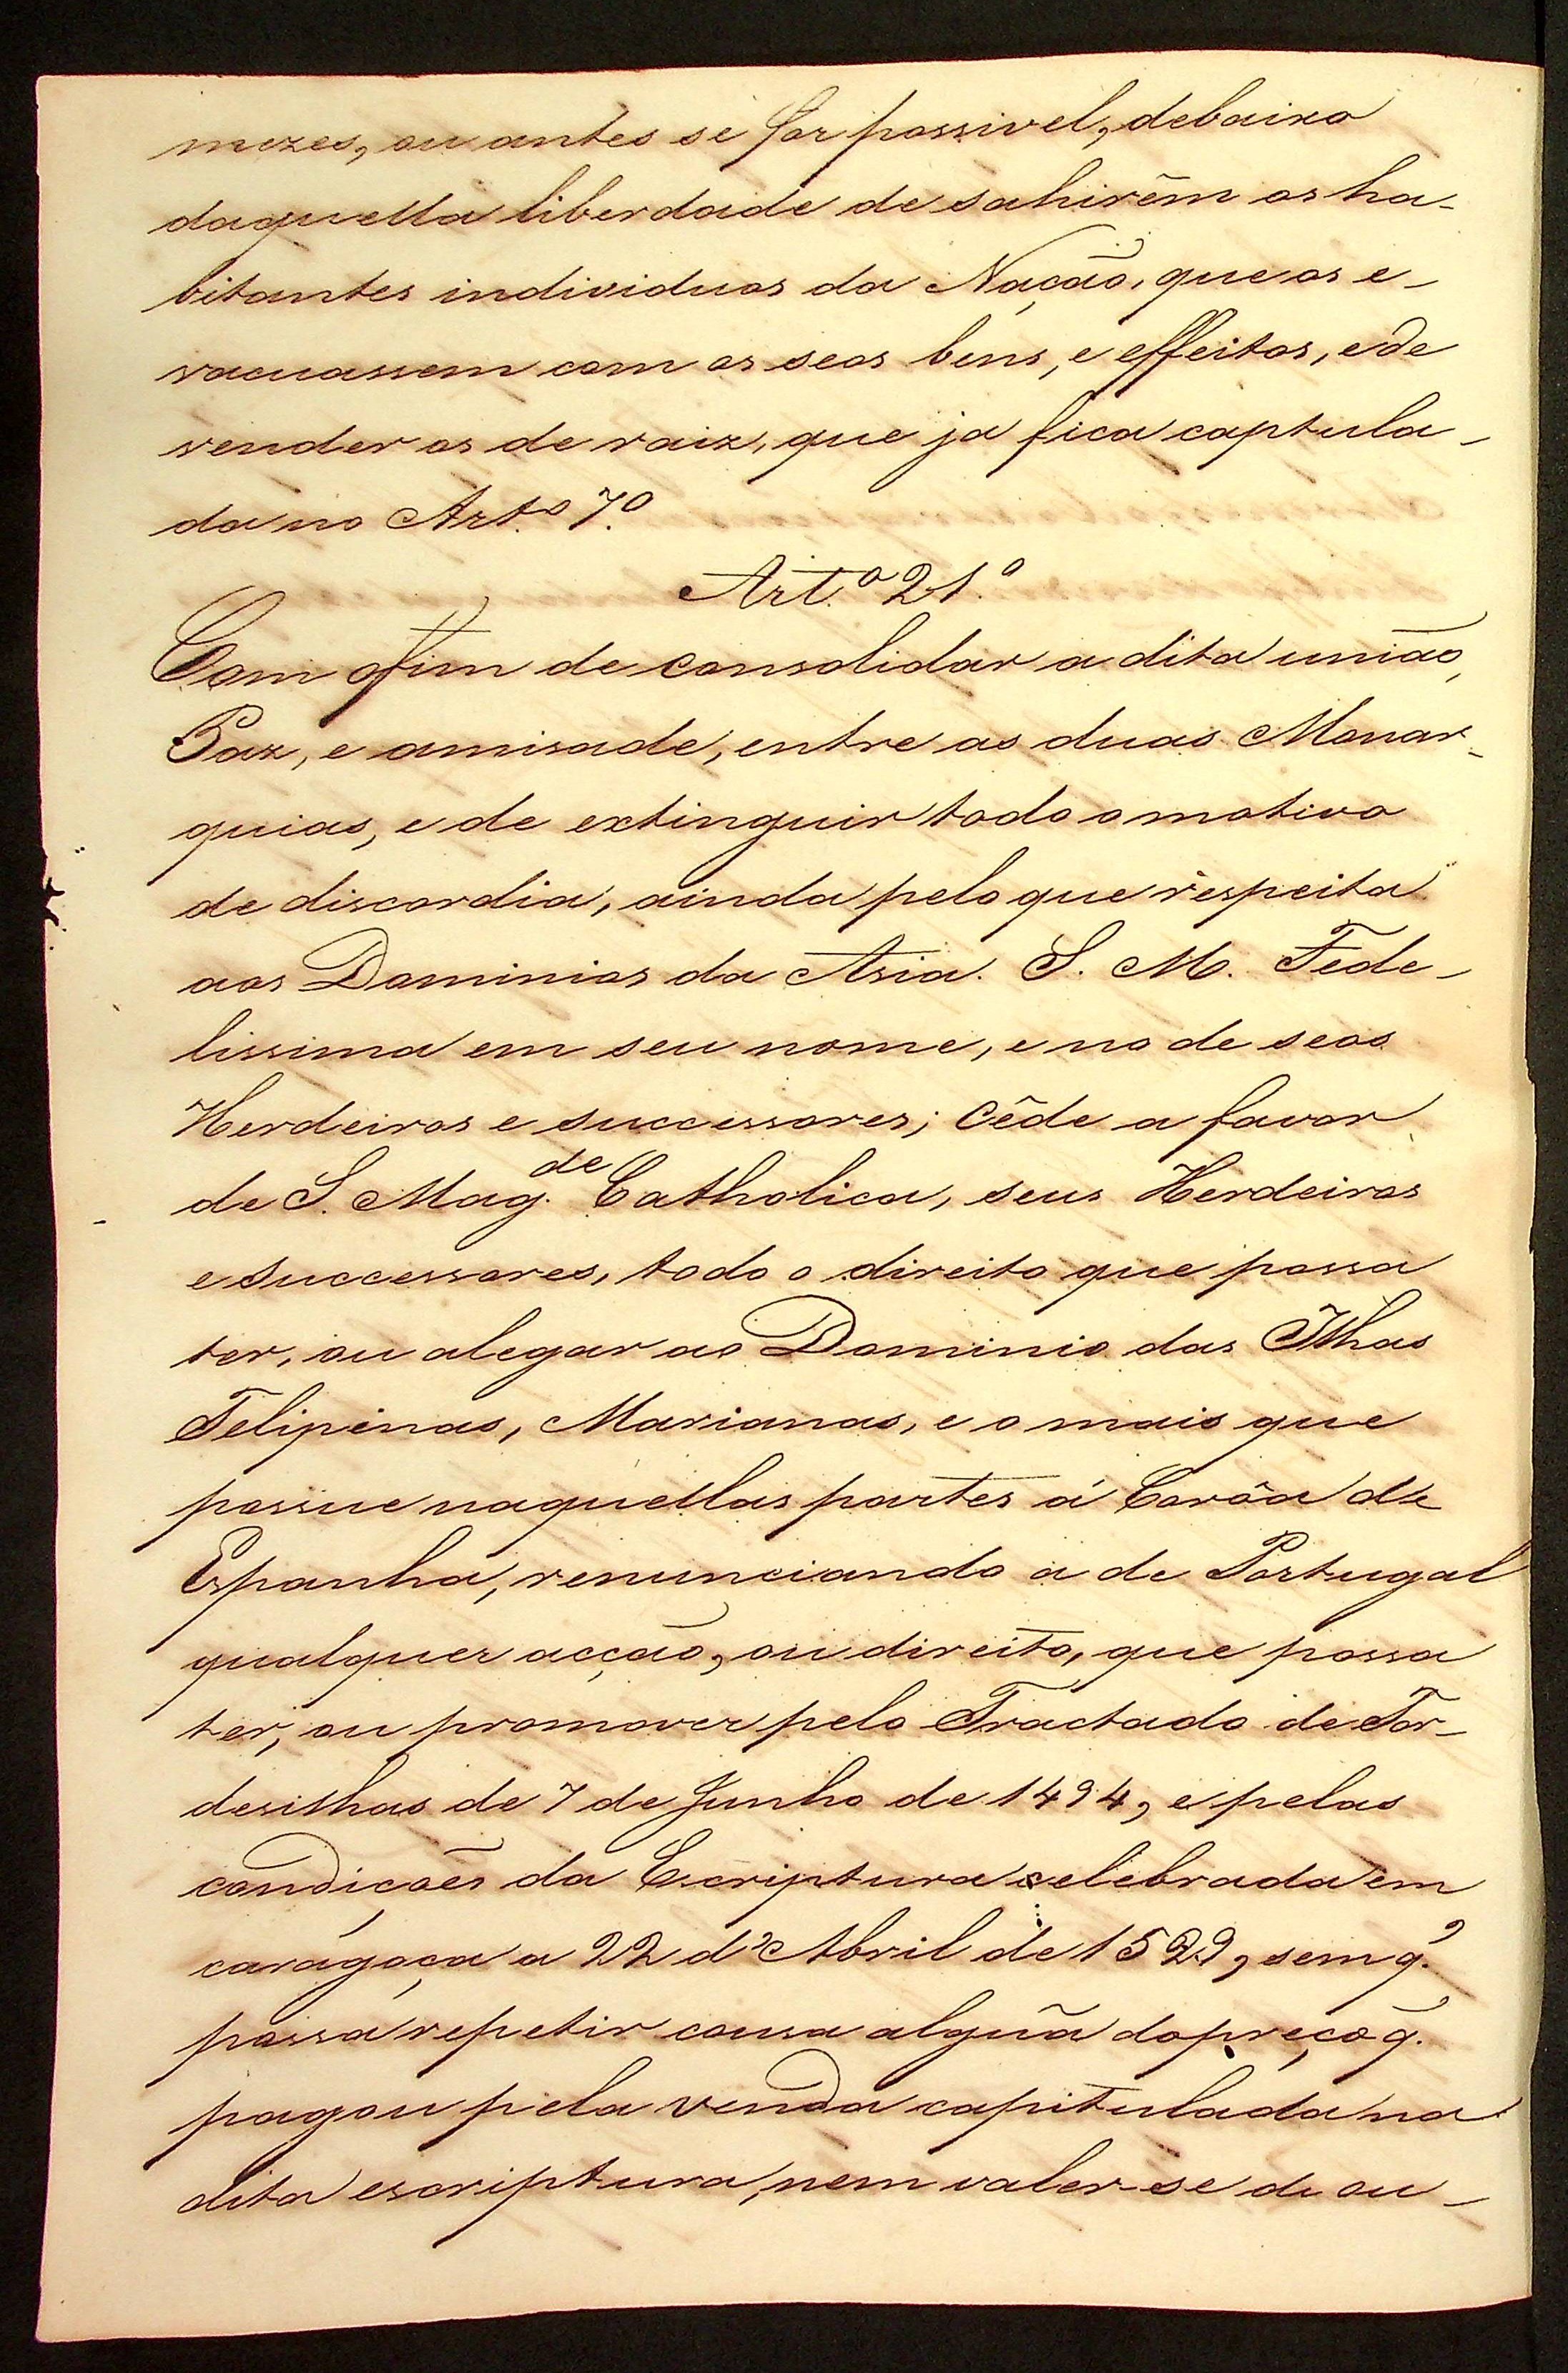 mezes, ou antes se for possivel, debaixo
daquella liberdade de sahirêm os ha-
bitantes individuos da Nação, que os e-
vacuassem com os seos bens, e effeitos, e de
vender os de raiz, que ja fica captula-
da no Art.º 7.º
Art.º 21.º
Com o fim de consolidar a dita união,
Paz, e amisade, entre as duas Monar-
quias, e de extinguir todo o motivo
de discordia, ainda pelo que respeita
aos Dominios da Asia. S. M. Fede-
lissima em seu nome, e no de seos
Herdeiros e successores; Cêde a favor
de S. Mag.de Catholica, seus Herdeiros
e successores, todo o direito que possa
ter, ou alegar ao Dominio das Ilhas
Felipinas, Marianas, e o mais que
possue naquellas partes á Corôa de
Espanha, renunciando a de Portugal
qualquer acção, ou direito, que possa
ter, ou promover pelo Tractado de Tor-
desilhas de 7 de Junho de 1494, e pelas
condições da Escriptura celebrada em
caragoça a 22 d'Abril de 1529, sem q.
possa repetir cousa algũa do preço q.
pagou pela venda capitulada na
dita escriptura, nem valer-se de ou-